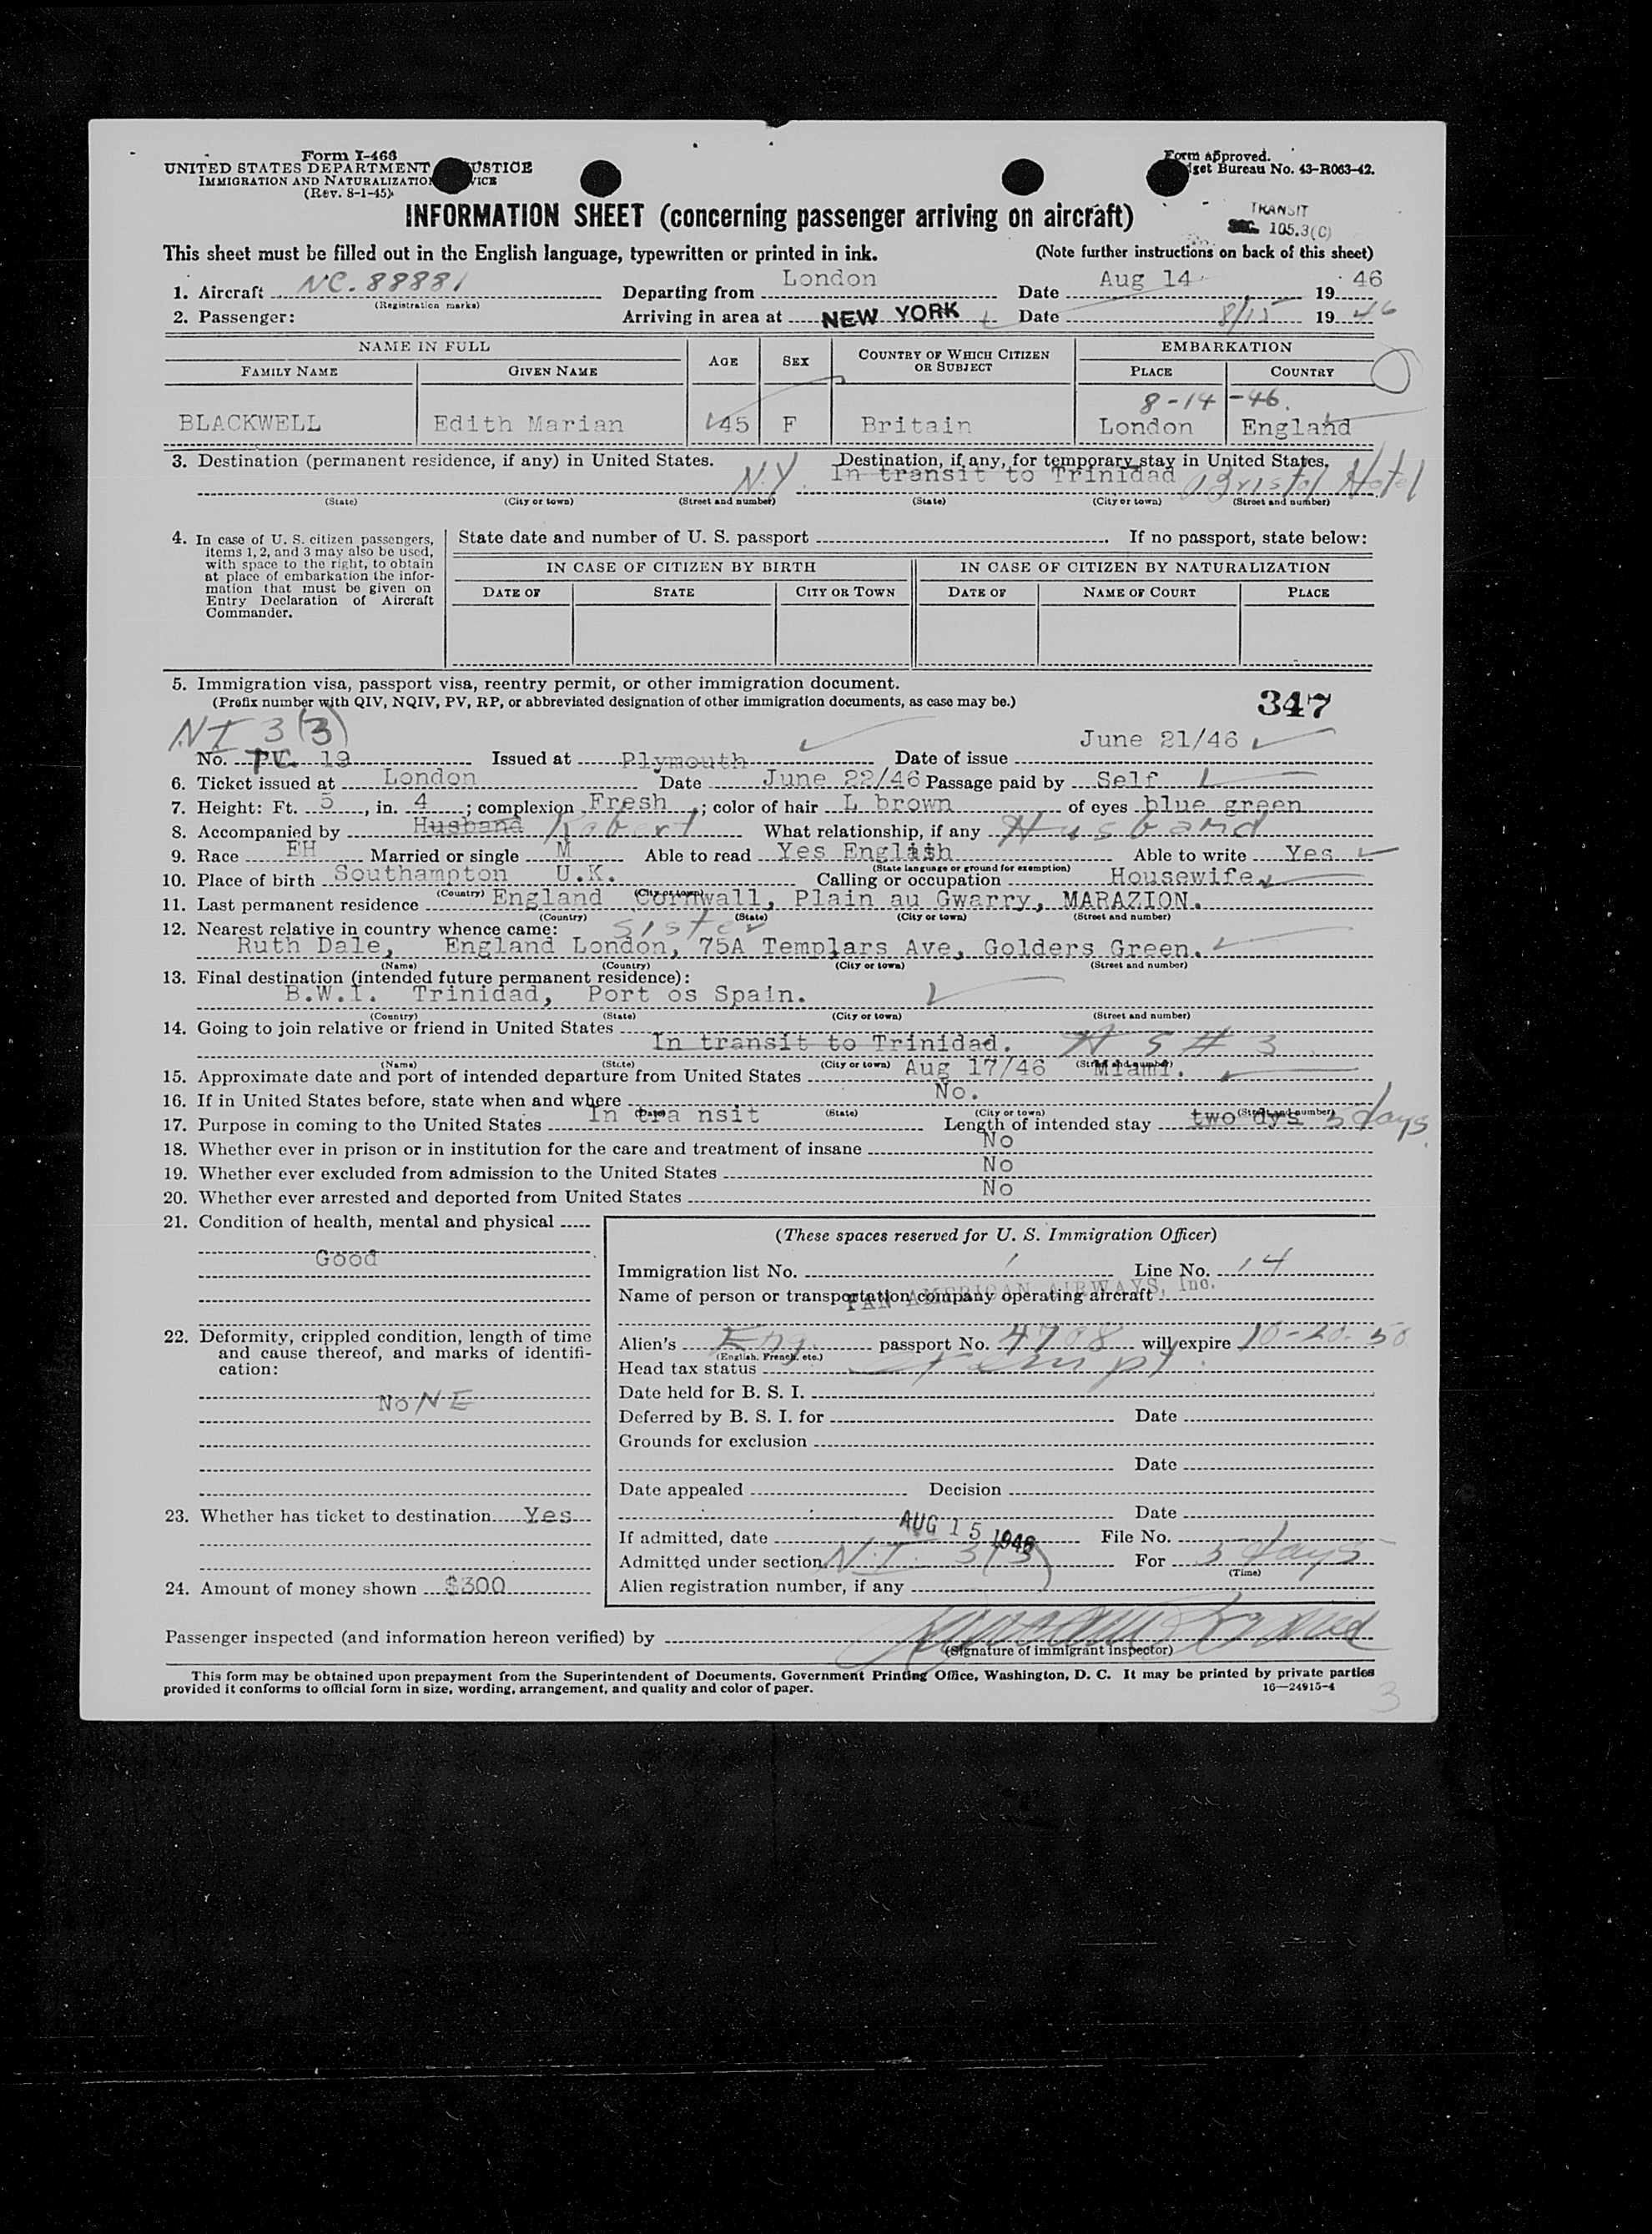 Form I-466
UNITED STATES DEPARTMENT JUSTICE
IMMIGRATION AND NATURALIZATION VICE
(Rev. 8-1-45)
Form approved.
get Bureau No. 43-R063-42.
INFORMATION SHEET (concerning passenger arriving on aircraft)
TRANSIT
SEC. 105.3(C)
This sheet must be filled out in the English language, typewritten or printed in ink. (Note further instructions on back of this sheet)
1. Aircraft NC. 88881 Departing from London Date Aug 14 19 46
(Registration marks)
2. Passenger: Arriving in area at NEW YORK Date 8/15 19 46
NAME IN FULL AGE SEX COUNTRY OF WHICH CITIZEN OR SUBJECT EMBARKATION
FAMILY NAME GIVEN NAME PLACE COUNTRY
8-14-46.
BLACKWELL Edith Marian 45 F Britain London England
3. Destination (permanent residence, if any) in United States. Destination, if any, for temporary stay in United States.
N.Y. In transit to Trinidad Bristol Hotel
(State) (City or town) (Street and number) (State) (City or town) (Street and number)
4. In case of U. S. citizen passengers, items 1, 2, and 3 may also be used, with space to the right, to obtain at place of embarkation the information that must be given on Entry Declaration of Aircraft Commander.
State date and number of U. S. passport If no passport, state below:
IN CASE OF CITIZEN BY BIRTH IN CASE OF CITIZEN BY NATURALIZATION
DATE OF STATE CITY OR TOWN DATE OF NAME OF COURT PLACE
5. Immigration visa, passport visa, reentry permit, or other immigration document.
(Prefix number with QIV, NQIV, PV, RP, or abbreviated designation of other immigration documents, as case may be.)
347
NI 3(3)
No. PV. 19 Issued at Plymouth Date of issue June 21/46
6. Ticket issued at London Date June 22/46 Passage paid by Self
7. Height: Ft. 5, in. 4; complexion Fresh; color of hair L brown of eyes blue green
8. Accompanied by Husband Robert What relationship, if any Husband
9. Race EH Married or single M Able to read Yes English Able to write Yes
(State language or ground for exemption)
10. Place of birth Southampton U.K. Calling or occupation Housewife
(Country) (City or town)
11. Last permanent residence England Cornwall, Plain au Gwarry, MARAZION.
(Country) (State) (City or town) (Street and number)
12. Nearest relative in country whence came: sister
Ruth Dale, England London, 75A Templars Ave, Golders Green.
(Name) (Country) (City or town) (Street and number)
13. Final destination (intended future permanent residence):
B.W.I. Trinidad, Port os Spain.
(Country) (State) (City or town) (Street and number)
14. Going to join relative or friend in United States
In transit to Trinidad. # 3
(Name) (State) (City or town) (Street and number)
15. Approximate date and port of intended departure from United States Aug 17/46 Miami.
16. If in United States before, state when and where No.
(Date) (State) (City or town) (Street and number)
17. Purpose in coming to the United States In tra nsit Length of intended stay two dys 3 days
18. Whether ever in prison or in institution for the care and treatment of insane No
19. Whether ever excluded from admission to the United States No
20. Whether ever arrested and deported from United States No
21. Condition of health, mental and physical
Good
22. Deformity, crippled condition, length of time and cause thereof, and marks of identification:
NoNE
23. Whether has ticket to destination Yes
24. Amount of money shown $300
(These spaces reserved for U. S. Immigration Officer)
Immigration list No. 1 Line No. 14
Name of person or transportation company operating aircraft PAN AMERICAN AIRWAYS, Inc.
Alien's Eng. passport No. 4708 will expire 10-20-50
(English, French, etc.)
Head tax status exempt
Date held for B. S. I.
Deferred by B. S. I. for Date
Grounds for exclusion
Date
Date appealed Decision
Date
If admitted, date AUG 15 1946 File No.
Admitted under section N.I. 3(3) For 3 days
(Time)
Alien registration number, if any
Passenger inspected (and information hereon verified) by
(Signature of immigrant inspector)
This form may be obtained upon prepayment from the Superintendent of Documents, Government Printing Office, Washington, D. C. It may be printed by private parties
provided it conforms to official form in size, wording, arrangement, and quality and color of paper. 16—24915-4
3